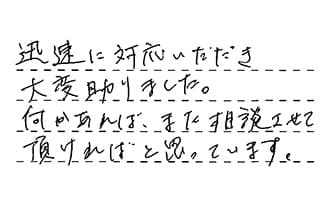 迅速に対応いただき
大変助りました。
何かあれば、また相談させて
頂ければと思っています。